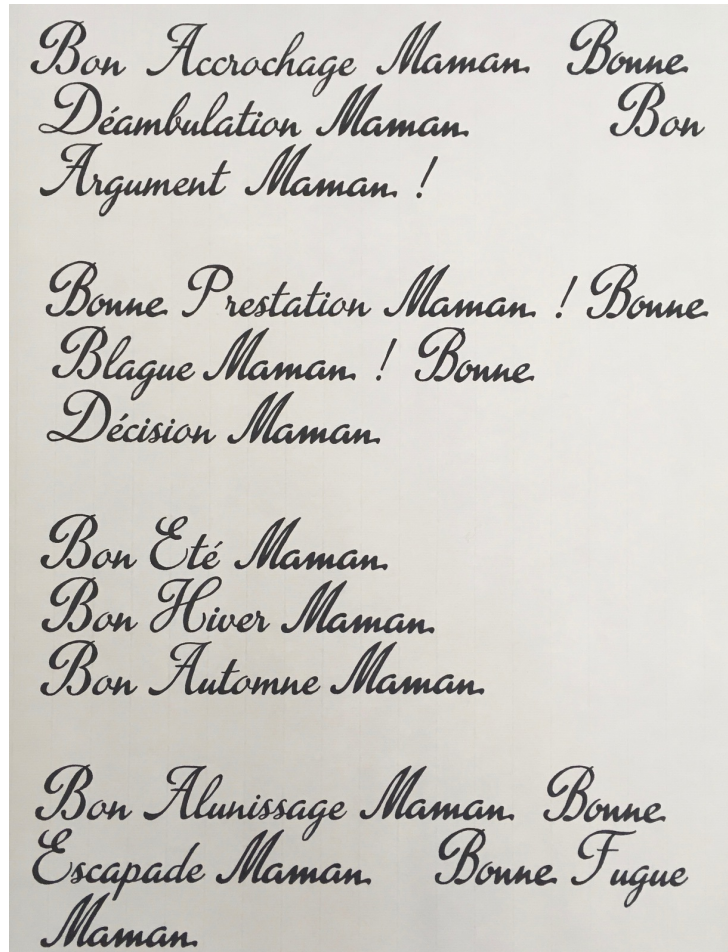 Bon Accrochage Maman. Bonne
Déambulation Maman. Bon
Argument Maman. !
Bonne Prestation Maman. ! Bonne
Blague Maman. ! Bonne
Décision Maman.
Bon Eté Maman.
Bon Hiver Maman.
Bon Automne Maman.
Bon Alunissage Maman. Bonne
Escapade Maman. Bonne Fugue
Maman.